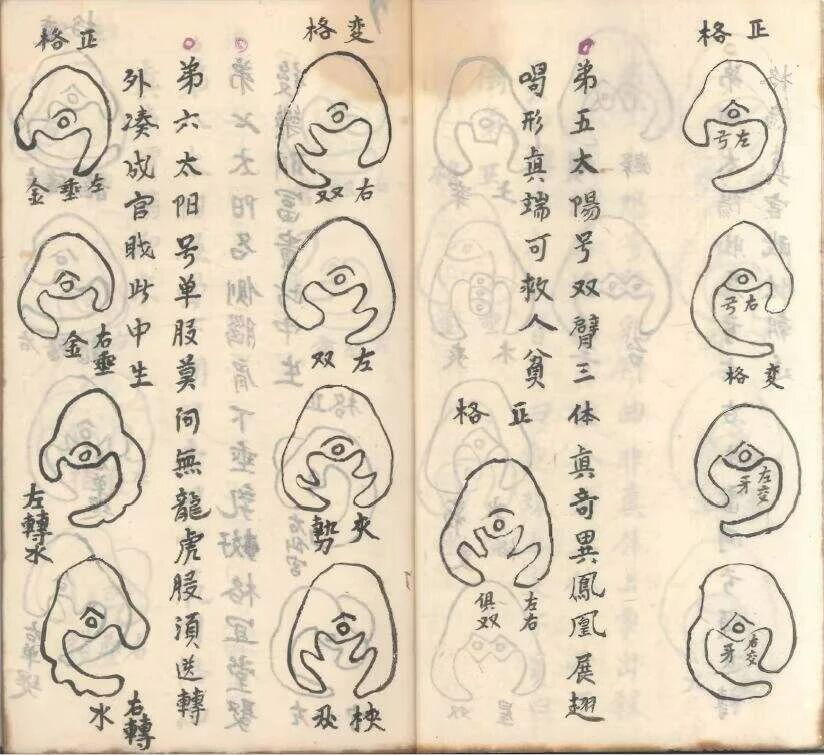 正格
左弓
右弓
変格
左交牙
右交牙
第五太陽号双臂三体真奇異鳳凰展翅
喝形真端可救人貧
正格
左右俱双
変格
右双
左双
夾勢
第六太阳号单股莫问無龍虎股湏送轉
外凑成官戝此中生
正格
左垂金
右垂金
左轉水
右轉水